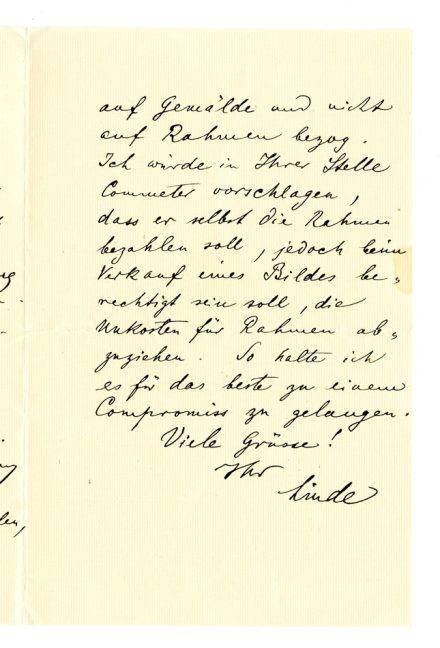 auf Gemälde und nicht
auf Rahmen bezog.
Ich würde in Ihrer Stelle
Commeter vorschlagen,
dass er selbst die Rahmen
bezahlen soll, jedoch beim
Verkauf eines Bildes be„
rechtigt sein soll, die
Unkosten für Rahmen ab„
zuziehen. So halte ich
es für das beste zu einem
Compromiss zu gelangen.
Viele Grüsse!
Ihr
Linde